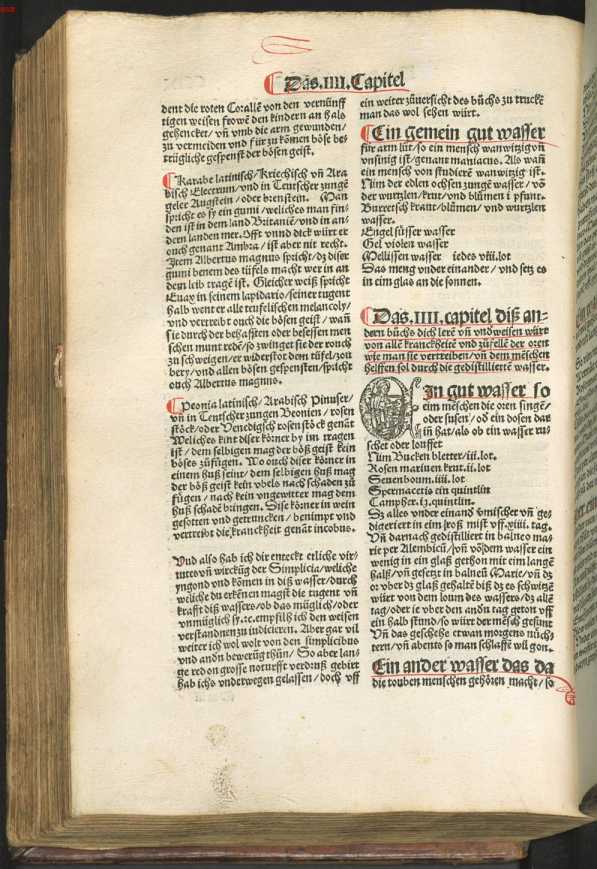 Das.IIII.Capitel
dent die roten Corallē von den vernünff
tigen weisen frowē den kindern an hals
gehencket/ vñ vmb die arm gewunden/
zů vermeiden vnd für zů kōmen böse be-
trügliche gespenst der bösen geist.
Karabe latinisch/ Kriechisch vñ Ara
bisch Electrum/ vnd in Teutscher zungē
geler Augstein/ oder brenstein. Man
spricht es sy ein gumi/ weliches man fin-
den ist in dem land Britaniē/ vnd in an-
dern landen mer. Offt vnnd dick würt er
ouch genant Ambra/ ist aber nit recht.
Item Albertus magnus spricht/ dz diser
gumi benem des tüfels macht wer in an
dem leib tragē ist. Gleicher weiß spricht
Euax in seinem lapidario/ seiner tugent
halb went er alle teufelischen melancoly/
vnd vertreibt ouch die bösen geist/ wañ
sie durch der behafften oder besessen men
schen munt redē/ so zwinget sie der rouch
zů schweigen/ er widerstot dem tüfel/ zou
bery/ vnd allen bösen gespensten/ spricht
ouch Albertus magnus.
Peonia latinisch/ Arabisch Pinuser/
vñ in Teutscher zungen Beonien/ rosen
stöck/ oder Venedigsch rosen stöck genāt
Weliches kint diser körner by im tragen
ist/ dem selbigen mag der böß geist kein
böses zůfügen. Wo ouch diser körner in
einem huß seint/ dem selbigen huß mag
der böß geist kein vbels nach schaden zů
fügen/ nach kein vngewitter mag dem
huß schadē bringen. Dise körner in wein
gesotten vnd getruncken/ benimpt vnd
vertreibt die kranckheit genāt incobus.
Vnd also hab ich dir enteckt etliche vir-
tutes vñ wirckūg der Simplicia/ weliche
yngond vnd kōmen in diß wasser/ durch
weliche du erkēnen magst die tugent vñ
krafft diß wassers/ ob das müglich/ oder
vnmüglich sy.ꝛc. empfilh ich den weisen
verstandnen zů iudicieren. Aber gar vil
weiter ich wol wolt von den simplicibus
vnd andn bewerūg thůn/ So aber lan-
ge red on grosse noturfft verdruß gebirt
hab ichs vnderwegen gelassen/ doch vff
ein weiter zůuersicht des bůchs zu truckē
man das wol sehen würt.
Ein gemein gut wasser
für arm lüt/ so ein mensch wanwitzig vñ
vnsinig ist/ genant maniacus. Als wañ
ein mensch von studierē wanwitzig ist.
Nim der edlen ochsen zungē wasser/ vō
der wurtzlen/ krut/ vnd blůmen i pfunt.
Burretsch kraut/ blůmen/ vnd wurtzlen
wasser.
Engelsüsser wasser
Gel violen wasser
Mellissen wasser iedes viii.lot
Das meng vnder einander/ vnd setz es
in eim glas an die sonnen.
Das.IIII.capitel diß an-
dern bůchs dich lerē vñ vndweisen würt
von allē kranckheitē vnd zůfellē der oren
wie man sie vertreiben/ vñ dem mēschen
helffen sol durch die gedistilliertē wasser.
In gut wasser so
eim mēschen die oren singē/
oder susen/ od ein dosen dar
in hat/ als ob ein wasser ru-
schet oder louffet
Nim Bucken bletter/ iii.lot.
Rosen mariven krut.ii.lot
Seuenboum.iiii.lot
Spermacetis ein quintlin
Campher.iz.quintlin.
Dz alles vnder einand vmischet vñ ge-
digeriert in eim roß mist vff.xiiii.tag.
Vñ darnach gedistilliert in balneo ma-
rie per Alembicū/ vñ vōsdem wasser ein
wenig in ein glaß gethon mit eim langē
halß/ vñ gesetzt in balneū Marie/ vñ dz
or vber dz glaß gehaltē biß dz es schwitzē
würt von dem loum des wassers/ dz alle
tag/ oder ie vber den andn tag geton vff
ein halb stund/ so würt der mēsch gesunt
Vñ das geschehe etwan morgens nůch-
tern/ vñ abents so man schlaffē wil gon.
Ein ander wasser das da
die touben menschen gehören macht/ so